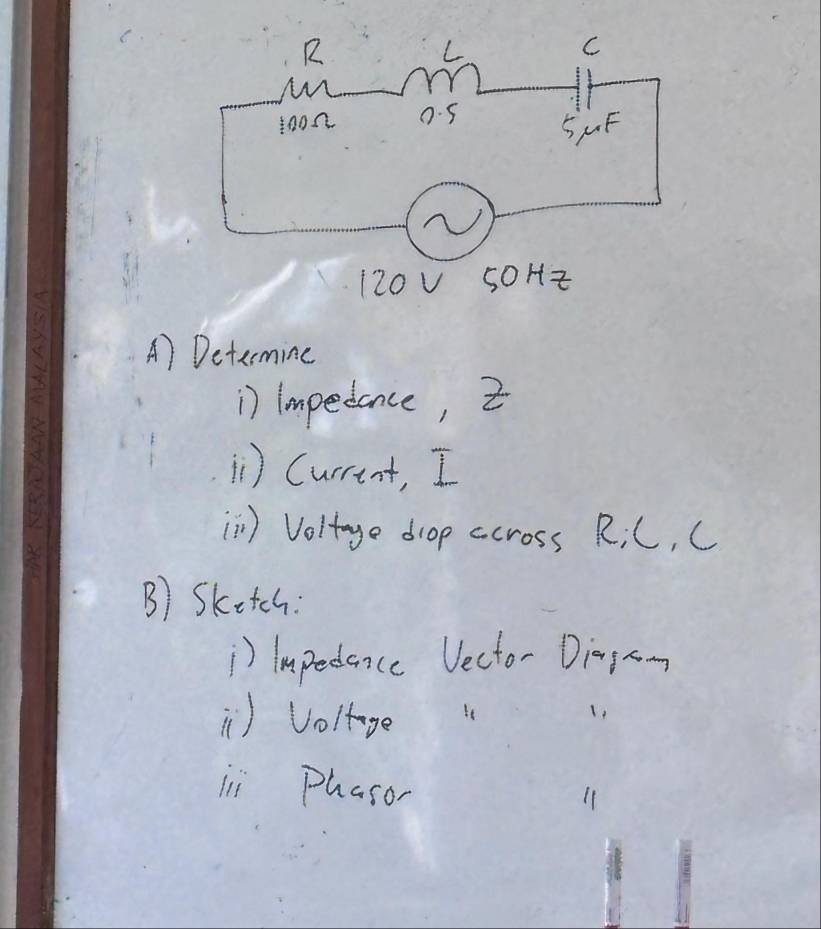 R L C
100Ω 0.5 5μF
120V 50HZ
A) Determine
i) Impedance, Z
ii) Current, I
iii) Voltage drop across R, L, C
B) Sketch:
i) Impedance Vector Diagram
ii) Voltage " "
iii Phasor "
HAK KERAJAAN MALAYSIA